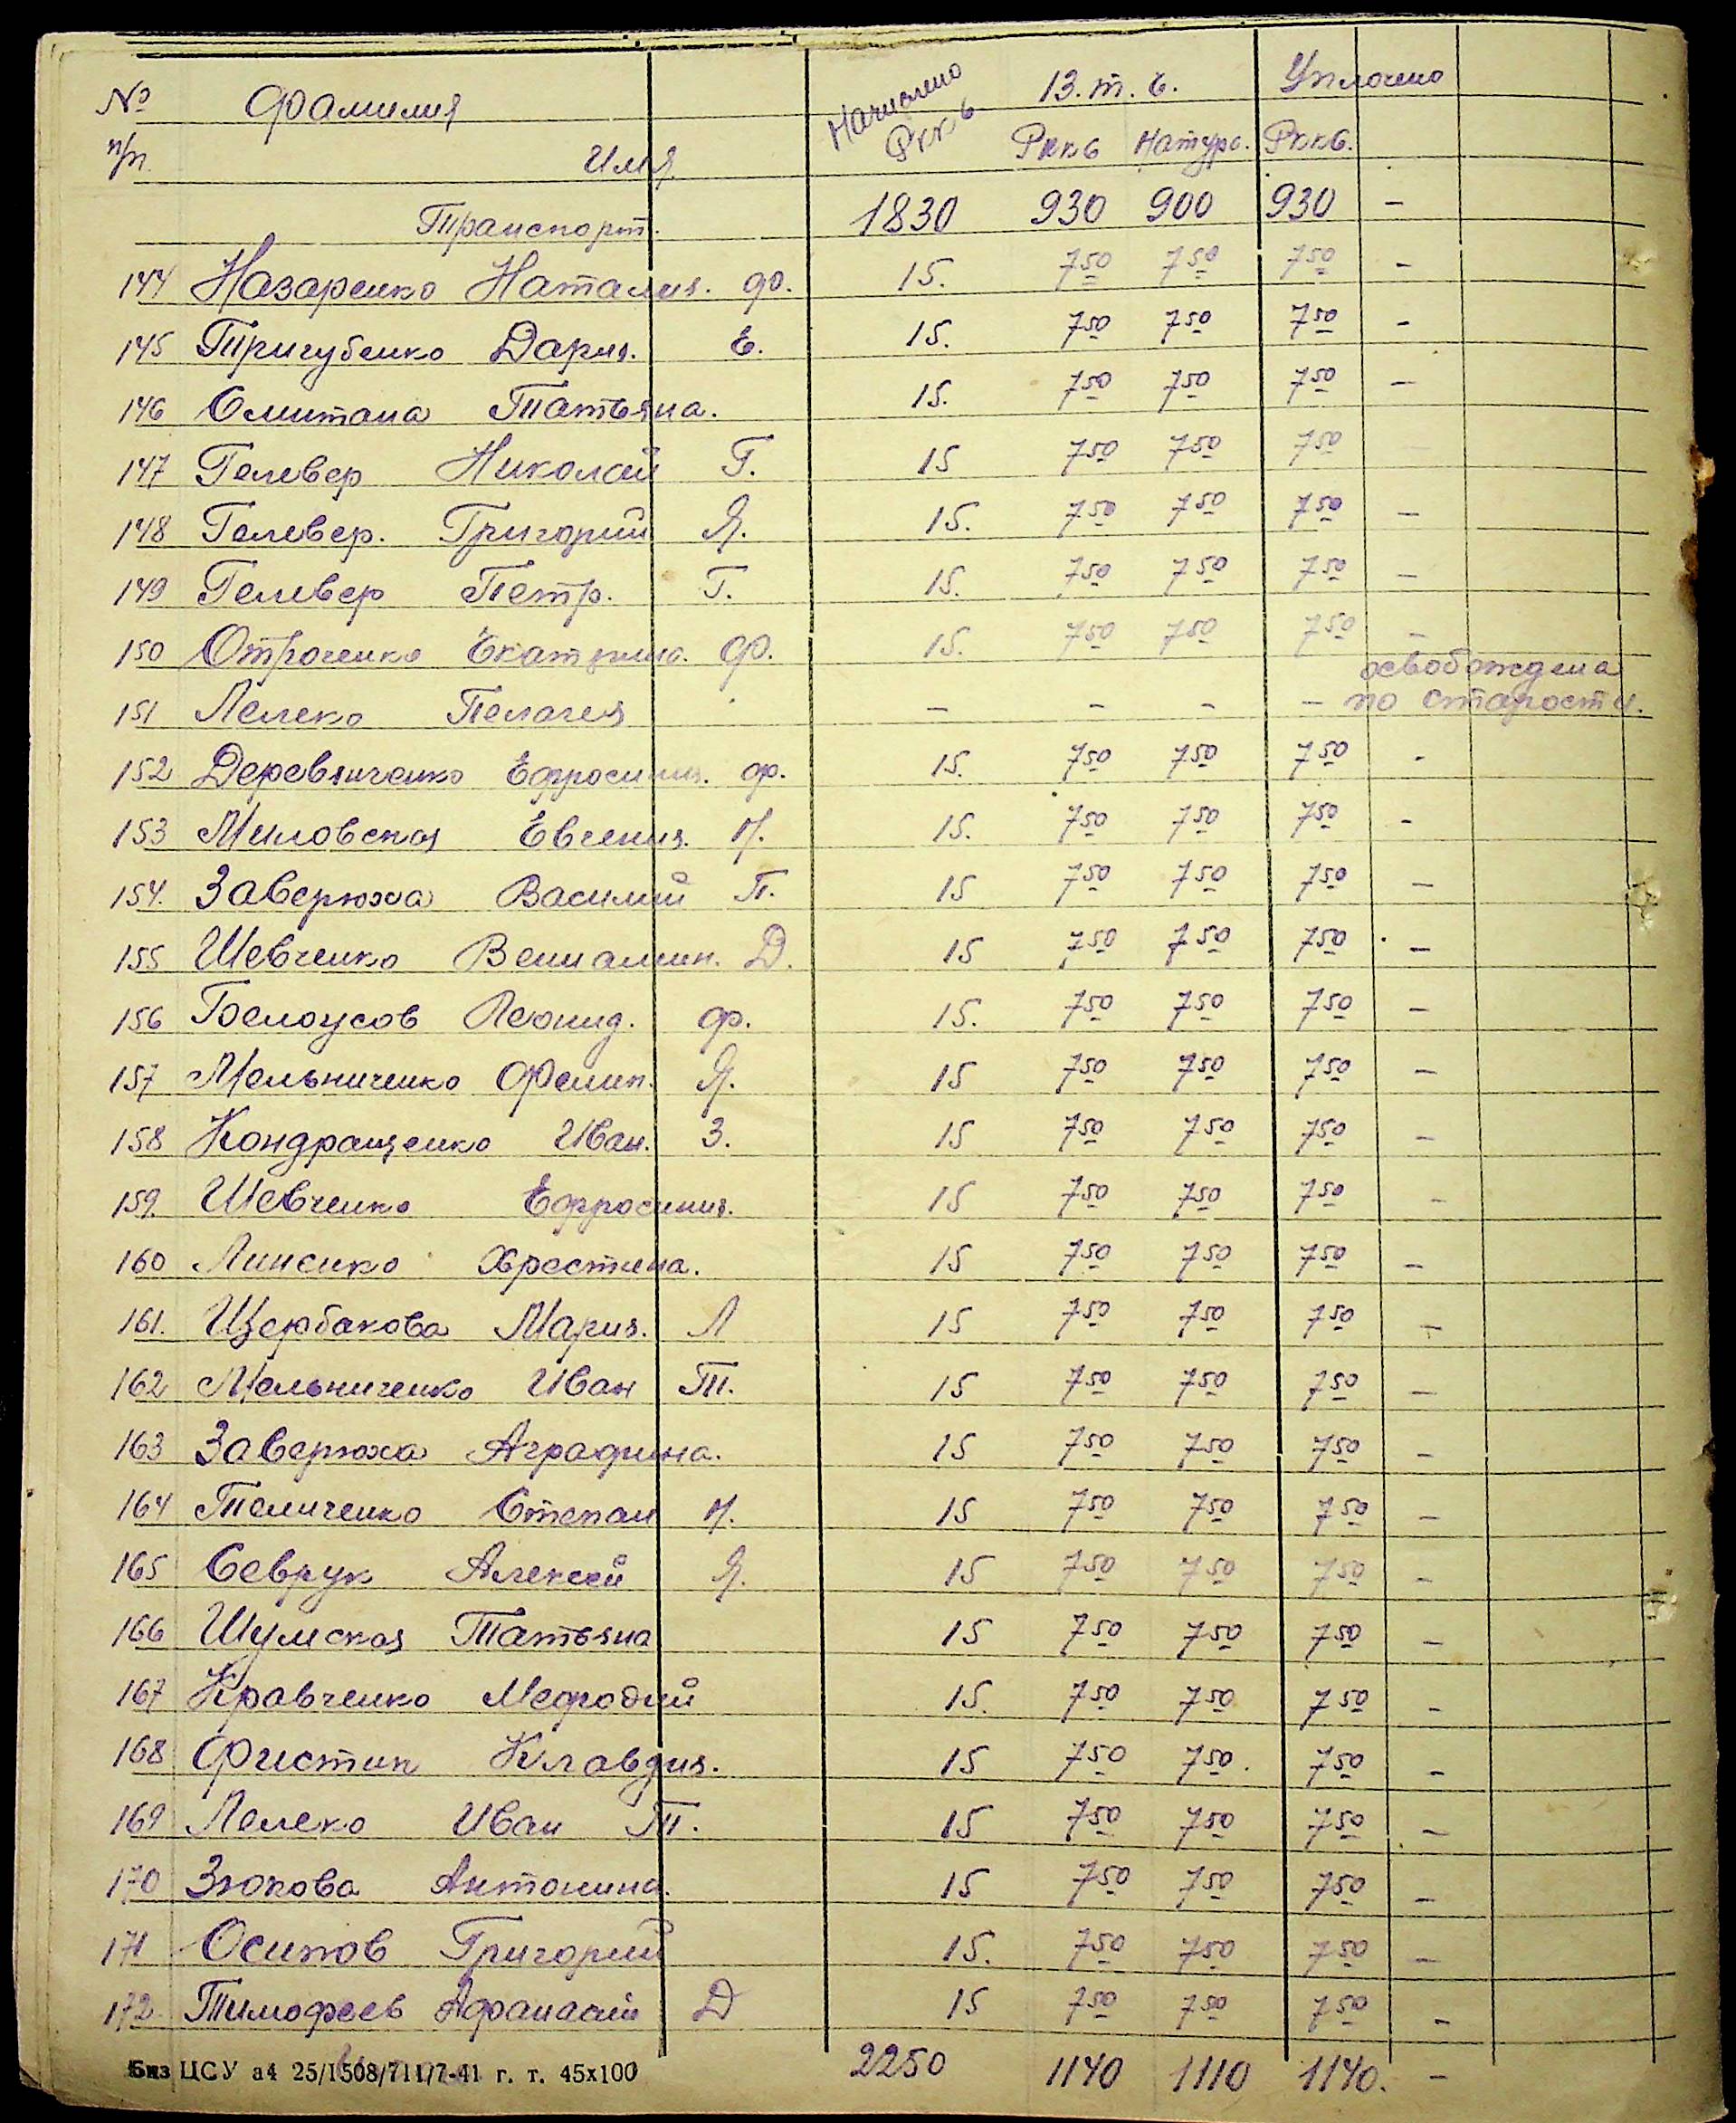 № Фамилия Начислено 13. т. ч. Уплочено
п/п. Имя Рккв Рккв Натура. Рккв.
Транспорт. 1830 930 900 930 -
144 Назаренко Наталия. Ф. 15. 7 50 7 50 7 50 -
145 Тригубенко Дария. Е. 15. 7 50 7 50 7 50 -
146 Смитана Татьяна. 15. 7 50 7 50 7 50 -
147 Гелевер Николай Г. 15 7 50 7 50 7 50
148 Гелевер. Григорий Я. 15. 7 50 7 50 7 50 -
149 Гелевер Петр. Г. 15. 7 50 7 50 7 50 -
150 Отроченко Екатрина. Ф. 15. 7 50 7 50 7 50 -
освобождена
151 Лелеко Пелагея - - - - по старости.
152 Деревянченко Ефросиния. Ф. 15. 7 50 7 50 7 50 -
153 Миловская Евгения. И. 15. 7 50 7 50 7 50 -
154. Заверюха Василий П. 15 7 50 7 50 7 50 -
155 Шевченко Вениамин. Д. 15 7 50 7 50 7 50 -
156 Белоусов Леонид. Ф. 15. 7 50 7 50 7 50 -
157 Мельниченко Филип. Я. 15 7 50 7 50 7 50 -
158 Кондращенко Иван. З. 15 7 50 7 50 7 50 -
159. Шевченко Ефросиния. 15 7 50 7 50 7 50 -
160 Линенко Хрестина. 15 7 50 7 50 7 50 -
161. Щербакова Мария. Л 15 7 50 7 50 7 50 -
162 Мельниченко Иван Т. 15 7 50 7 50 7 50 -
163 Заверюха Аграфина. 15 7 50 7 50 7 50 -
164 Теличенко Степан И. 15 7 50 7 50 7 50 -
165 Севрук Алексей Я. 15 7 50 7 50 7 50 -
166 Шумская Татьяна 15 7 50 7 50 7 50 -
167 Кравченко Мефодий 15. 7 50 7 50 7 50 -
168 Фистин Клавдия. 15 7 50 7 50. 7 50 -
169 Лелеко Иван Т. 15 7 50 7 50 7 50 -
170 Зюкова Антонина. 15 7 50 7 50 7 50 -
171 Осипов Григорий 15. 7 50 7 50 7 50 -
172 Тимофеев Афанасий Д 15 7 50 7 50 7 50 -
2250 1140 1110 1140. -
Биз ЦСУ а4 25/1508/711/7-41 г. т. 45х100